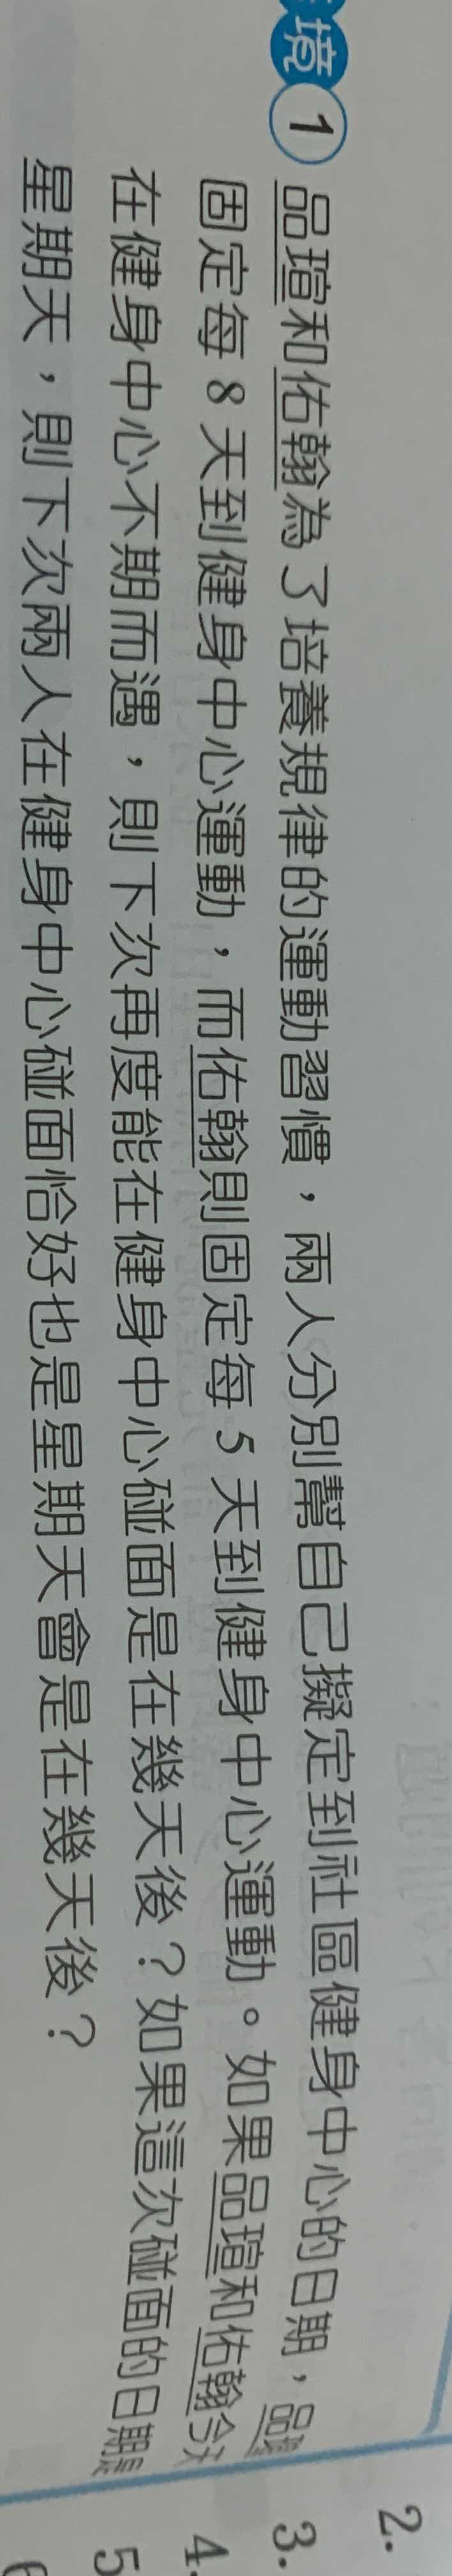 境1 品瑄和佑翰為了培養規律的運動習慣，兩人分別幫自己擬定到社區健身中心的日期，品
固定每8天到健身中心運動，而佑翰則固定每5天到健身中心運動。如果品瑄和佑翰今天
在健身中心不期而遇，則下次再度能在健身中心碰面是在幾天後？如果這次碰面的日期
星期天，則下次兩人在健身中心碰面恰好也是星期天會是在幾天後？
2.
3.
4.
5